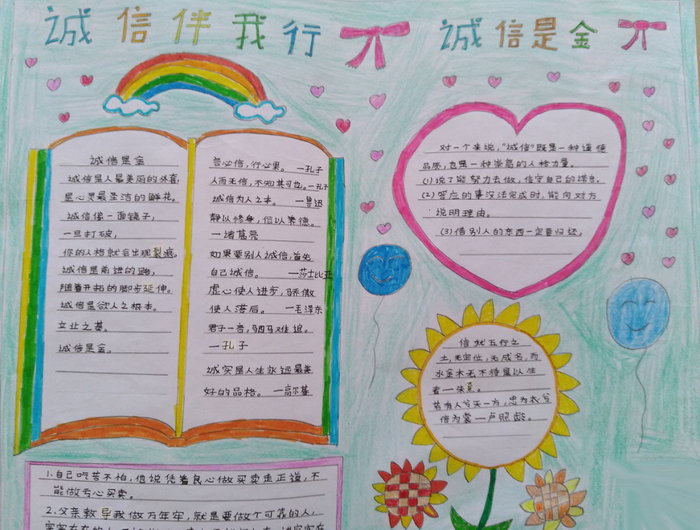 诚信伴我行
诚信是金
诚信是金
诚信是人最美丽的外套,
是心灵最圣洁的鲜花。
诚信像一面镜子,
一旦打破,
你的人格就会出现裂痕。
诚信是前进的路,
随着开拓的脚步延伸。
诚信是做人之根本。
立业之基。
诚信是金。
言必信,行必果。 —孔子
人而无信,不知其可也。—孔子
诚信为人之本。 —鲁迅
静以修身,俭以养德。
—诸葛亮
如果要别人诚信,首先
自己诚信。 —莎士比亚
虚心使人进步,骄傲
使人落后。 —毛泽东
君子一言,驷马难追。
—孔子
诚实是人生永远最美
好的品格。 —高尔基
对一个来说,"诚信"既是一种道德
品质,也是一种崇高的人格力量。
(1)说了能努力去做,信守自己的诺言。
(2)答应的事没法完成时,能向对方
说明理由。
(3)借别人的东西一定要归还。
信犹五行之
土,无定位,无成名,而
水金木无不待是以生
者—朱熹。
若有人兮天一方,忠为衣兮
信为裳—卢照龄。
1.自己吃苦不怕,但说凭着良心做买卖走正道,不
能做亏心买卖。
2.父亲教导我做万年牢,就是要做个可靠的人,